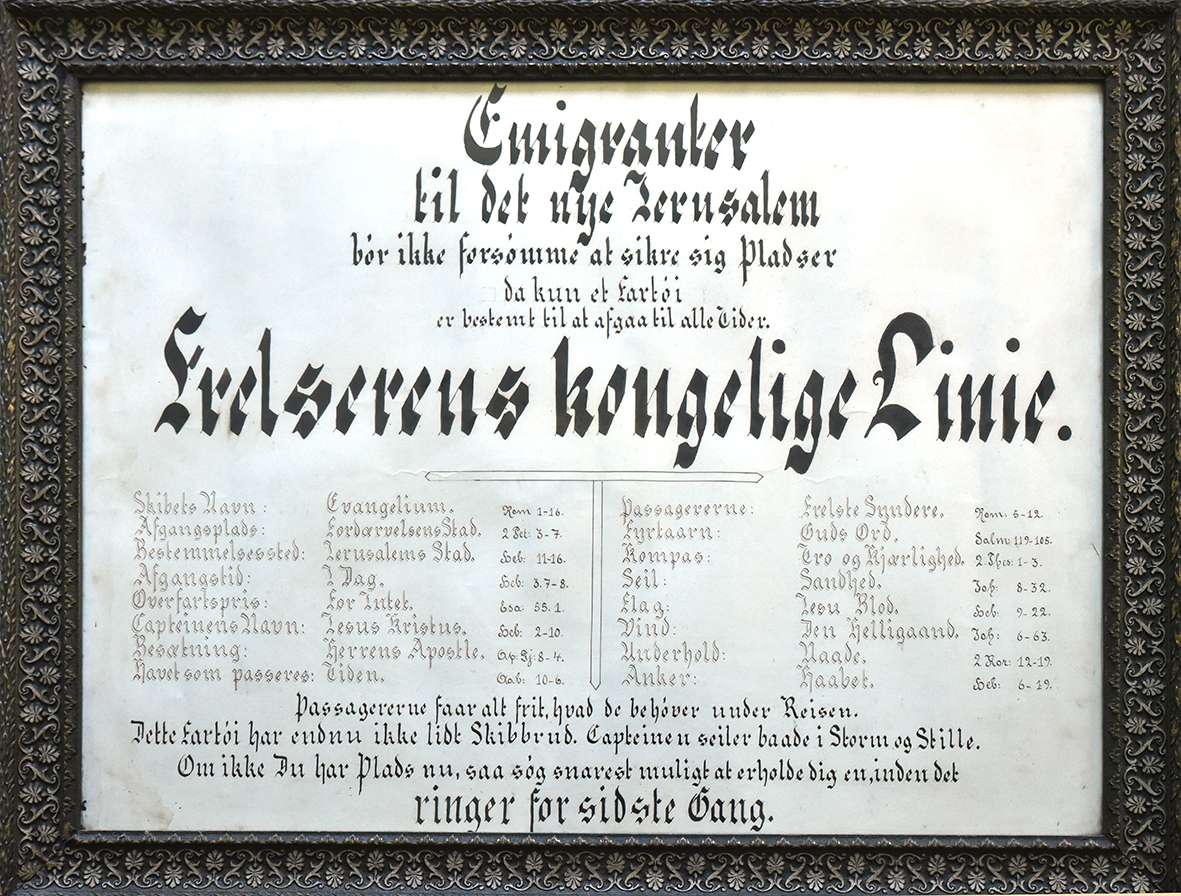 Emigranter
til det nye Jerusalem
bör ikke forsömme at sikre sig Pladser
da kun et Fartöi
er bestemt til at afgaa til alle Tider.
Frelserens kongelige Linie.
Skibets Navn: Evangelium. Rom 1-16.
Afgangsplads: Fordærvelsens Stad. 2 Pet: 3-7.
Bestemmelsessted: Jerusalems Stad. Heb: 11-16.
Afgangstid: I Dag. Heb: 3.7-8.
Overfartspris: For Intet. Esa: 55.1.
Capteinens Navn: Jesus Kristus. Heb: 2-10.
Besætning: Herrens Apostle. Ap. Gj: 8-4.
Havet som passeres: Tiden. Aab: 10-6.
Passagererne: Frelste Syndere. Rom: 5-12.
Fyrtaarn: Guds Ord. Salm: 119-105.
Kompas: Tro og Kjærlighed. 2 Thes: 1-3.
Seil: Sandhed. Joh: 8-32.
Flag: Jesu Blod. Heb: 9-22.
Vind: Den Helligaand. Joh: 6-63.
Underhold: Naade. 2 Kor: 12-19.
Anker: Haabet. Heb: 6-19.
Passagererne faar alt frit, hvad de behöver under Reisen.
Dette Fartöi har endnu ikke lidt Skibbrud. Capteinen seiler baade i Storm og Stille.
Om ikke Du har Plads nu, saa sög snarest muligt at erholde dig en, inden det
ringer for sidste Gang.